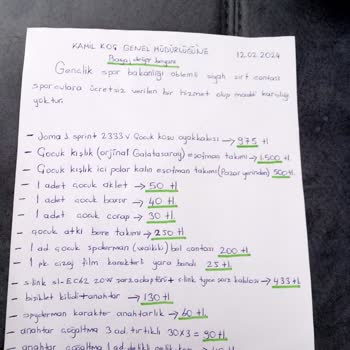 KAMİL KOÇ GENEL MÜDÜRLÜĞÜNE 12.02.2024
Bagaj değer beyanı
Gençlik spor bakanlığı eblemli siyah sırt cantası
sporculara ücretsiz verilen bir hizmet olup maddi karşılığı
yoktur.
- Joma J. sprint 2333 v Çocuk koşu ayakkabısı → 975 tl
- Çocuk kışlık (orjinal Galatasaray) eşofman takımı → 1.500 tl
- Çocuk kışlık içi polar kalın eşofman takımı (Pazar yerinden) 500 tl
- 1 adet çocuk atlet → 50 tl
- 1 adet çocuk boxsır → 40 tl
- 1 adet çocuk corap → 30 tl
- çocuk atkı bere takımı → 250 tl
- 1 ad. çocuk spiderman (waikiki) bel cantası 200 tl
- 1 pk. çizgi film karakterli yara bandı 25 tl
- s-link sl-EC62 20W şarz adaptörü + s-link type şarz kablosu → 433 tl
- bisiklet kilidi + anahtar → 130 tl
- spyderman karakter anahtarlık → 60 tl.
- anahtar çoğaltma 3 ad. tırtıklı 30x3 = 90 tl
- anahtar çoğaltma 1 ad. delikli